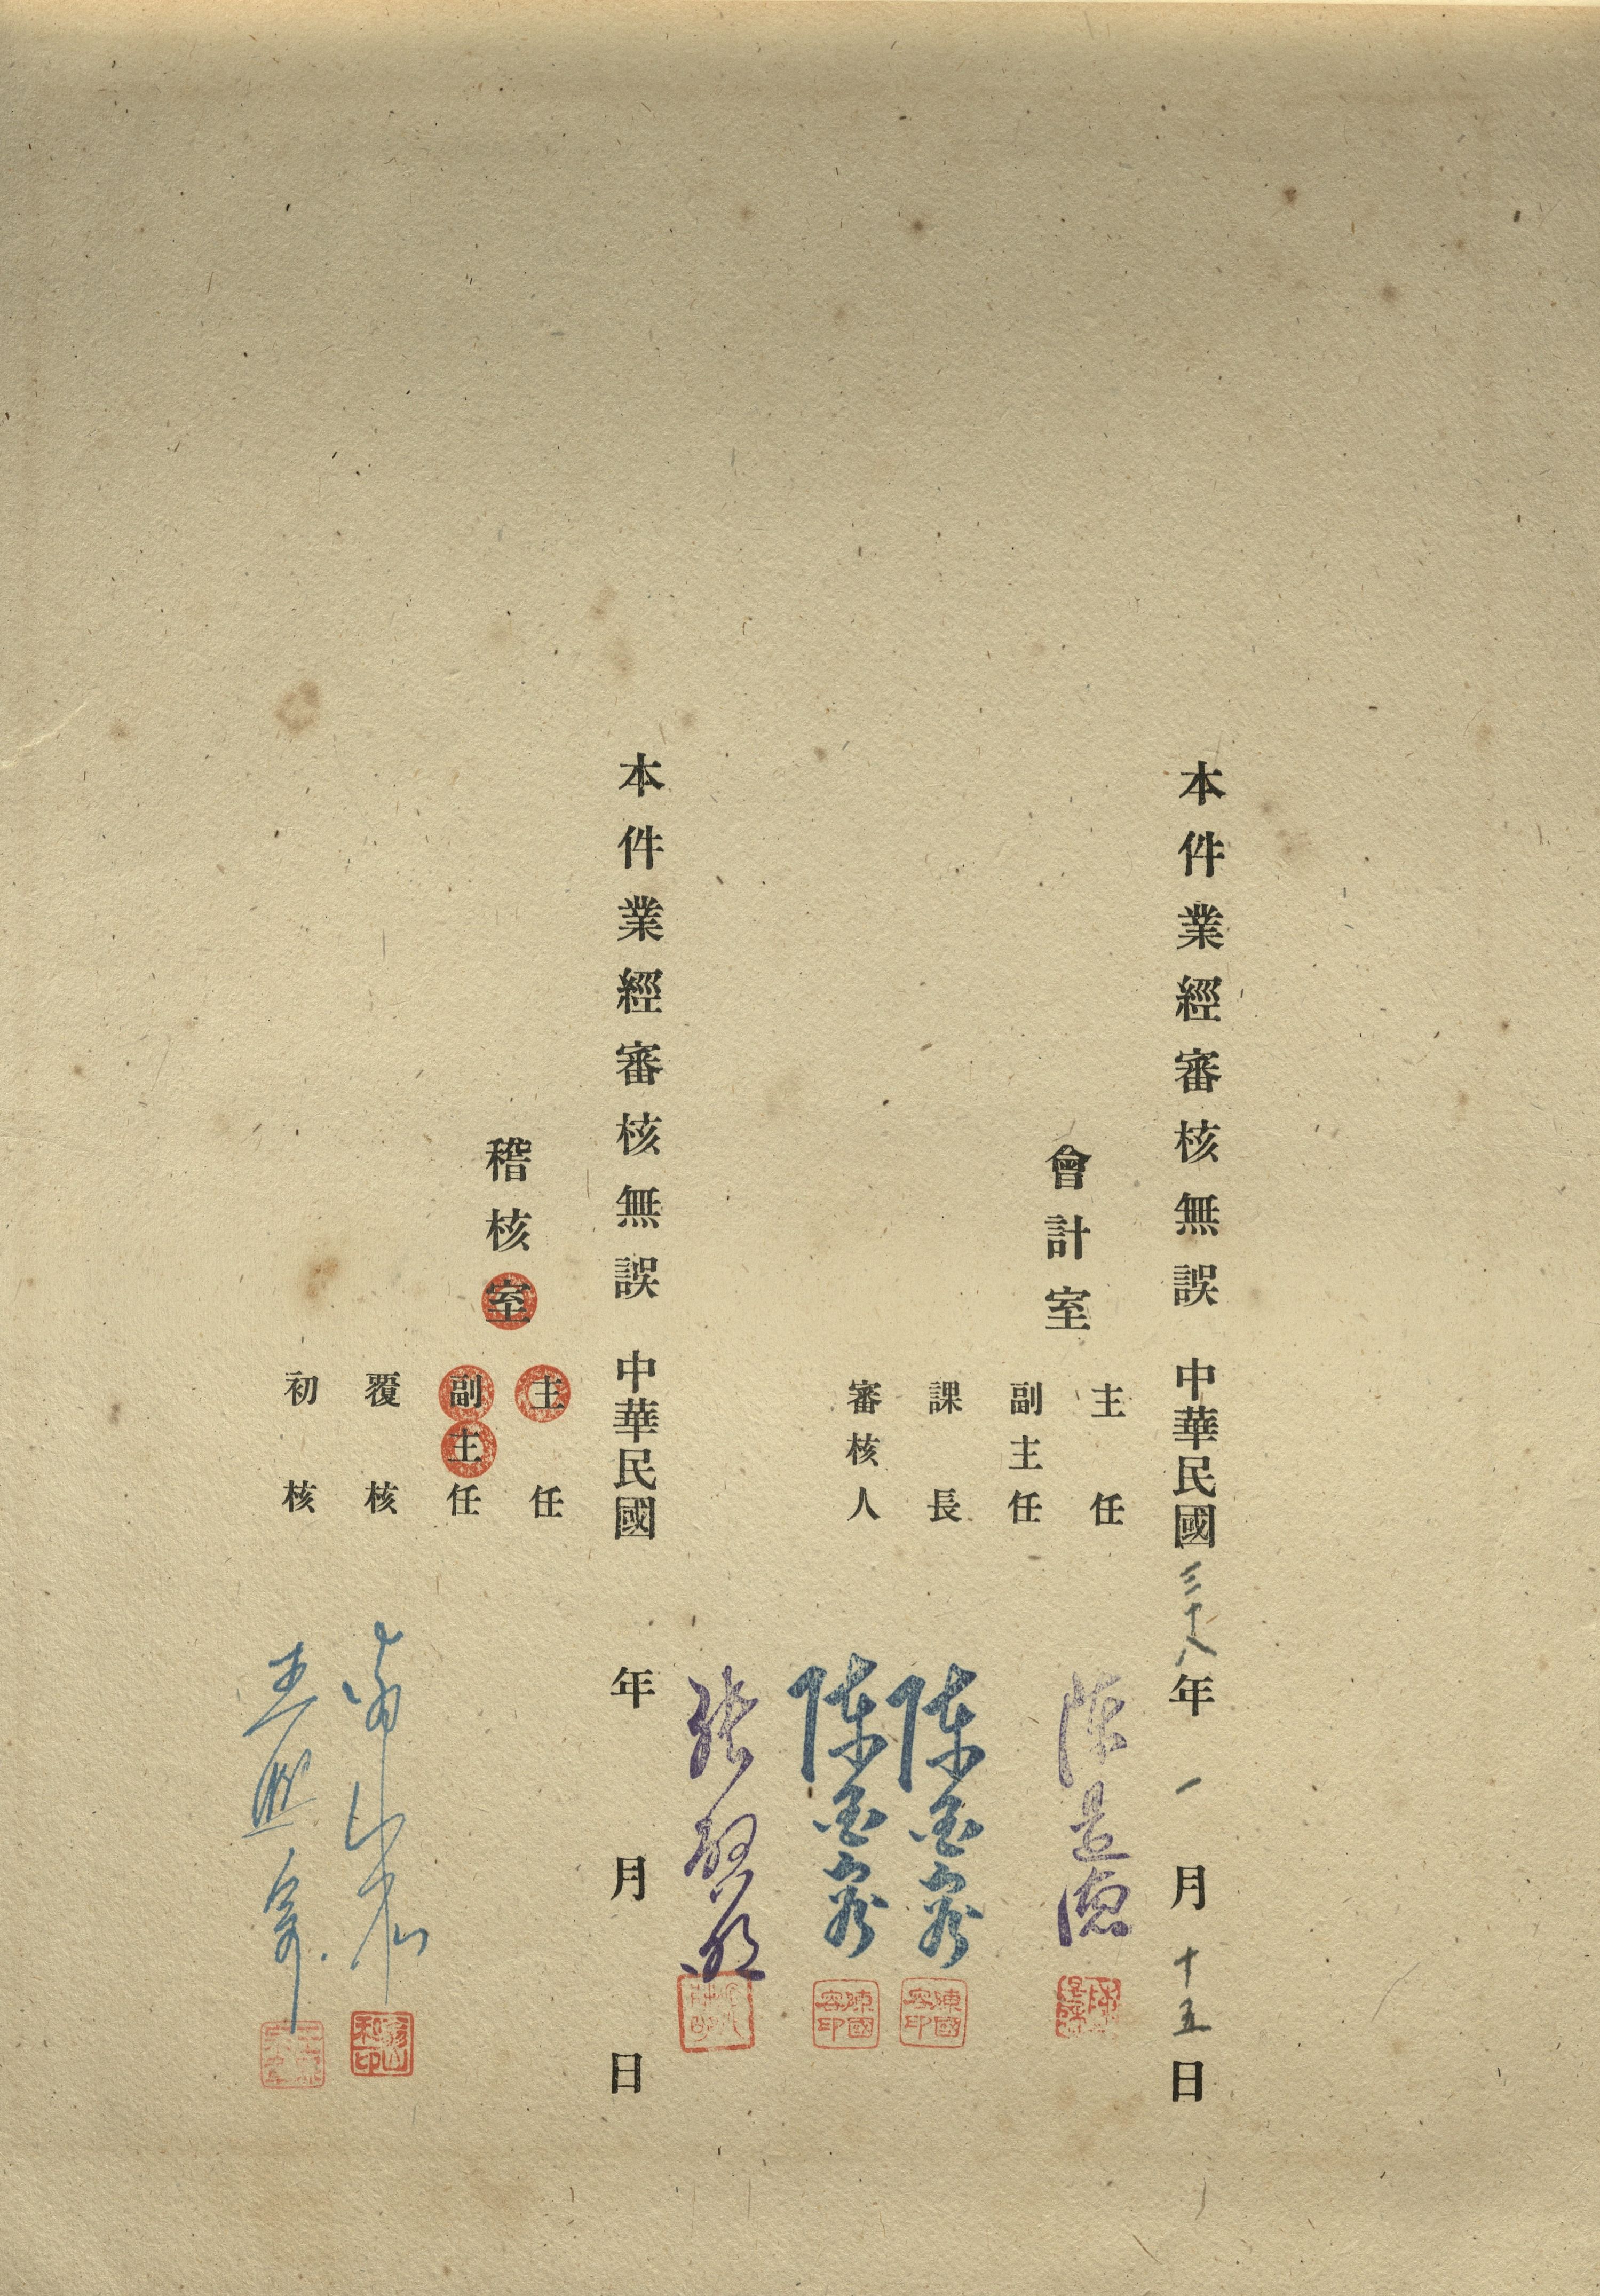 本件業經審核無誤 中華民國三十八年一月十五日
會計室
主任 陳是德
副主任
課長 陳國容
審核人 陳國容
張啓明
陳國容印
陳國容印
本件業經審核無誤 中華民國 年 月 日
稽核室
主任
副主任
覆核
初核 王熙宗